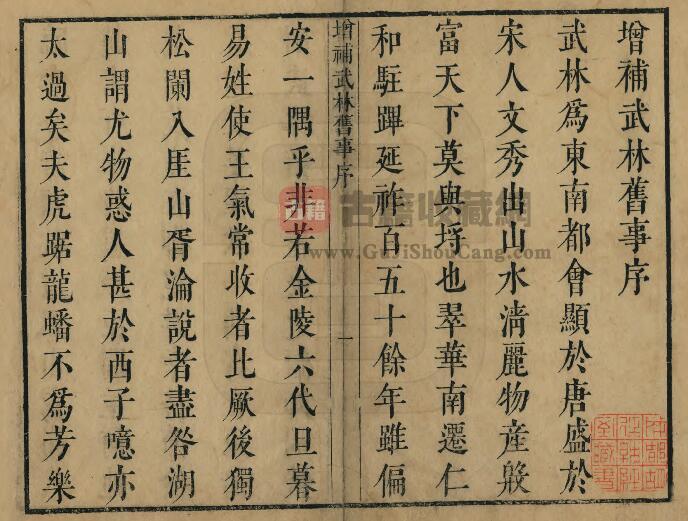 增補武林舊事序
武林爲東南都會顯於唐盛於
宋人文秀出山水淸麗物産殷
富天下莫與埒也翠華南遷仁
和駐蹕延祚百五十餘年雖偏
增補武林舊事序 一
安一隅乎非若金陵六代旦暮
易姓使王氣常收者比厥後獨
松闌入厓山胥淪說者盡咎湖
山謂尤物惑人甚於西子噫亦
太過矣夫虎踞龍蟠不爲芳樂
古籍
古籍收藏網
www.GuJiShouCang.com